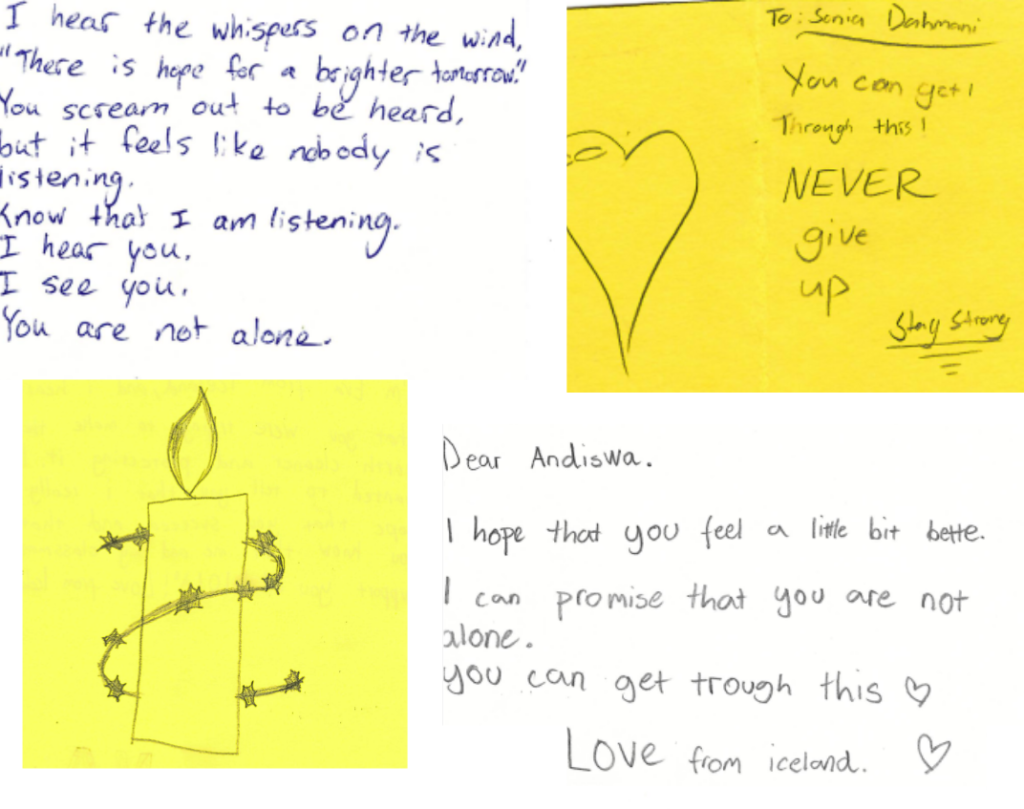 I hear the whispers on the wind,
"There is hope for a brighter tomorrow."
You scream out to be heard,
but it feels like nobody is
listening.
Know that I am listening.
I hear you.
I see you.
You are not alone.
To: Sonia Dahmani
You can get!
Through this!
NEVER
give
up
Stay Strong
Dear Andiswa.
I hope that you feel a little bit bette.
I can promise that you are not
alone.
you can get trough this ♡
LOVE from iceland. ♡